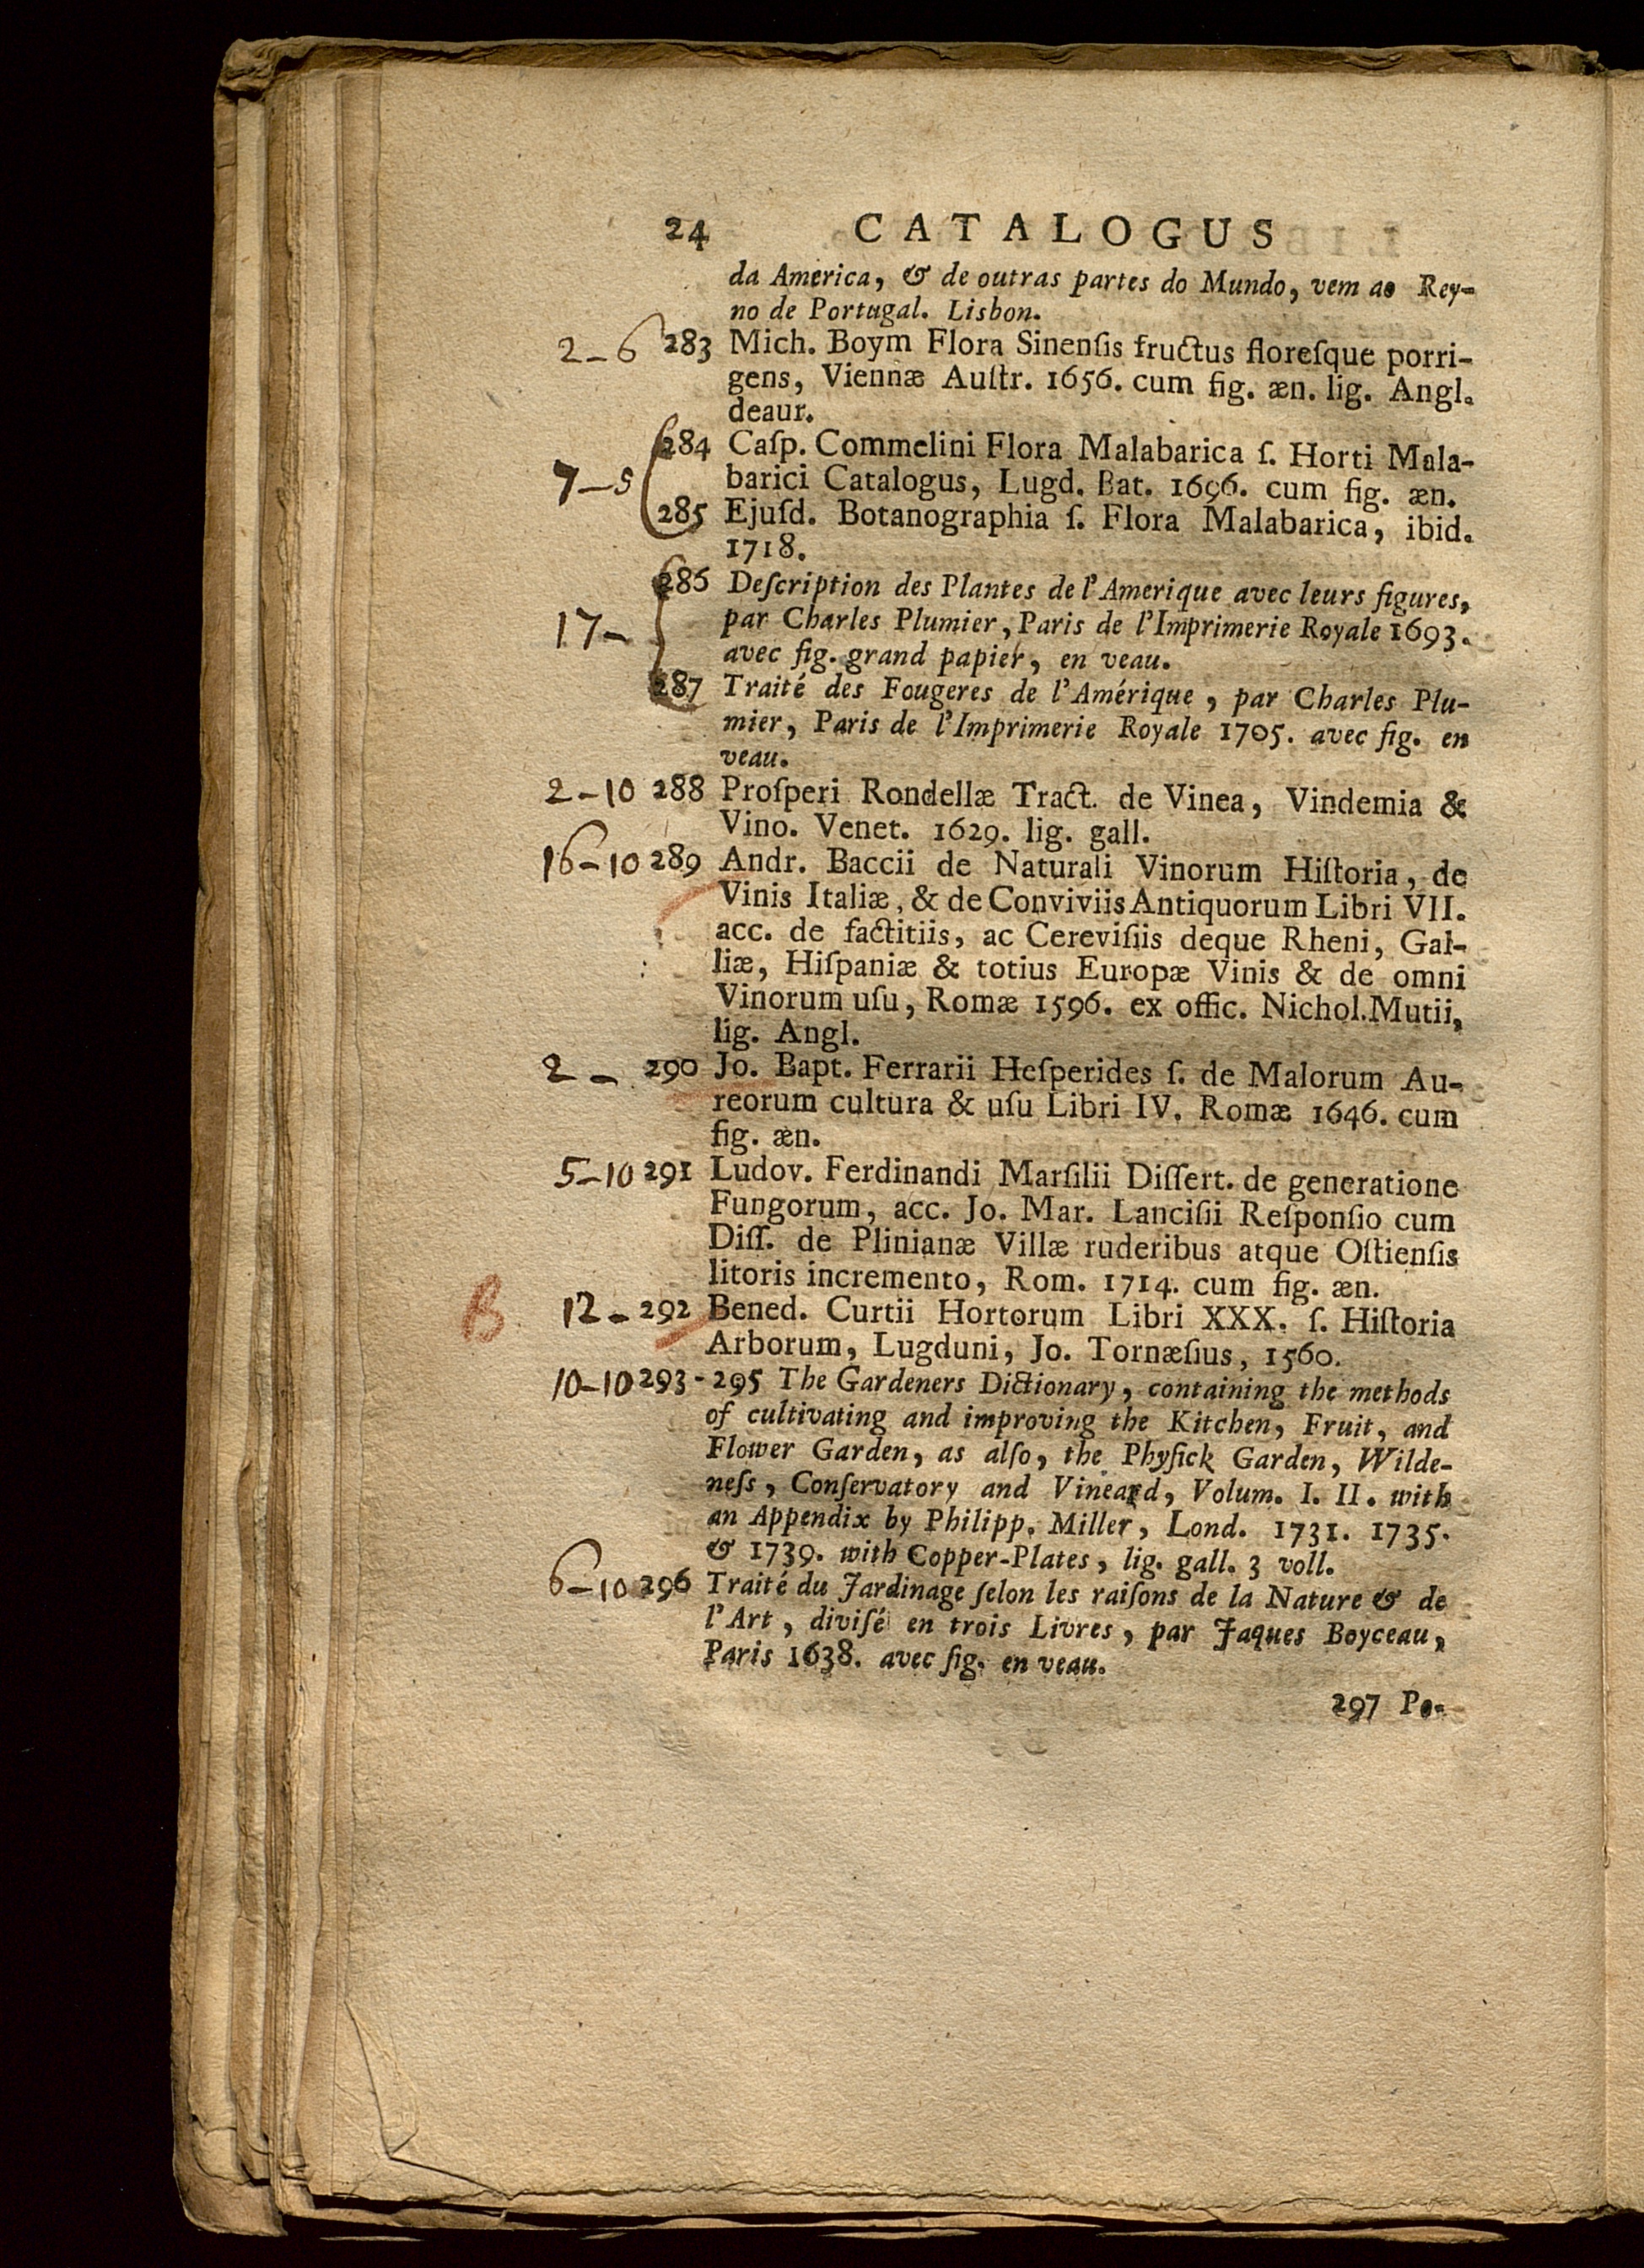 24 CATALOGUS
da America, & de outras partes do Mundo, vem ao Rey-
no de Portugal. Lisbon.
2-6 283 Mich. Boym Flora Sinenſis fructus floreſque porri-
gens, Viennæ Auſtr. 1656. cum fig. æn. lig. Angl.
deaur.
284 Caſp. Commelini Flora Malabarica ſ. Horti Mala-
7-5 barici Catalogus, Lugd. Bat. 1696. cum fig. æn.
285 Ejuſd. Botanographia ſ. Flora Malabarica, ibid.
1718.
286 Deſcription des Plantes de l'Amerique avec leurs figures,
17- par Charles Plumier, Paris de l'Imprimerie Royale 1693.
avec fig. grand papier, en veau.
287 Traité des Fougeres de l'Amérique, par Charles Plu-
mier, Paris de l'Imprimerie Royale 1705. avec fig. en
veau.
2-10 288 Proſperi Rondellæ Tract. de Vinea, Vindemia &
Vino. Venet. 1629. lig. gall.
16-10 289 Andr. Baccii de Naturali Vinorum Hiſtoria, de
Vinis Italiæ, & de Conviviis Antiquorum Libri VII.
acc. de factitiis, ac Cereviſiis deque Rheni, Gal-
liæ, Hiſpaniæ & totius Europæ Vinis & de omni
Vinorum uſu, Romæ 1596. ex offic. Nichol. Mutii,
lig. Angl.
2 - 290 Jo. Bapt. Ferrarii Heſperides ſ. de Malorum Au-
reorum cultura & uſu Libri IV. Romæ 1646. cum
fig. æn.
5-10 291 Ludov. Ferdinandi Marſilii Diſſert. de generatione
Fungorum, acc. Jo. Mar. Lanciſii Reſponſio cum
Diſſ. de Plinianæ Villæ ruderibus atque Oſtienſis
litoris incremento, Rom. 1714. cum fig. æn.
B 12- 292 Bened. Curtii Hortorum Libri XXX. ſ. Hiſtoria
Arborum, Lugduni, Jo. Tornæſius, 1560.
10-10 293-295 The Gardeners Dictionary, containing the methods
of cultivating and improving the Kitchen, Fruit, and
Flower Garden, as alſo, the Phyſick Garden, Wilde-
neſs, Conſervatory and Vineard, Volum. I. II. with
an Appendix by Philipp. Miller, Lond. 1731. 1735.
& 1739. with Copper-Plates, lig. gall. 3 voll.
6-10 296 Traité du Jardinage ſelon les raiſons de la Nature & de
l'Art, diviſé en trois Livres, par Jaques Boyceau,
Paris 1638. avec fig. en veau.
297 Po-